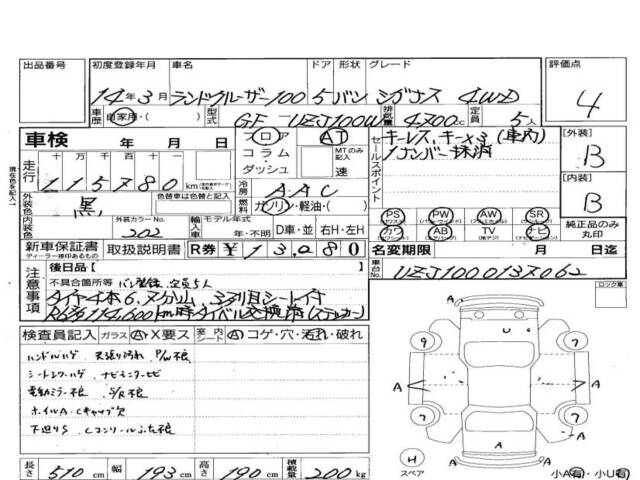 出品番号 初度登録年月 車名 ドア 形状 グレード 評価点
14年3月 ランドクルーザー100 5 バン シグナス 4WD 4
車歴 自家用・( ) 型式 GF-UZJ100W 排気量 4700cc 定員 5人
車検 年 月 日 フロア AT キーレス、キー×3(車内)
1ナンバー抹消
コラム・ダッシュ MTのみ記入 速 セールスポイント 【外装】 B
走行 十万千百十一
115780 km
冷房 AAC 【内装】 B
外装色 黒 色替車は色替と記入 燃料 ガソリン・軽油・( )
PS PW AW SR
カワ AB TV ナビ 純正品のみ丸印
外装カラーNo. 202 輸入車 モデル年式 年・不明 D車・並 右H・左H
新車保証書 取扱説明書 R券 ¥13,080 名変期限 月 日迄
ディーラー捺印あるもの
車台No. UZJ1000137062
注意事項 後日品【 】
不具合箇所等 バン登録、定員5人
タイヤ4本6、ヌケ山、3列目シートイ寸
R6/6 114,600km時タイベル交換済(ステッカー)
ロック車
検査員記入 ガラス A・X要ス 室内シート A コゲ・穴・汚れ・破れ
ハンドルハゲ 天張り汚れ P/W不良
シートシワハゲ ナビモニターヒビ
電動ミラー不良 S/R不良
ホイルA・Cキャップ欠
下廻りS Cコンソールふた不良
9 9
A A A
7 7
A
H
スペア
小A(有)・小U(有)
長さ 510cm 幅 193cm 高さ 190cm 積載量 200kg